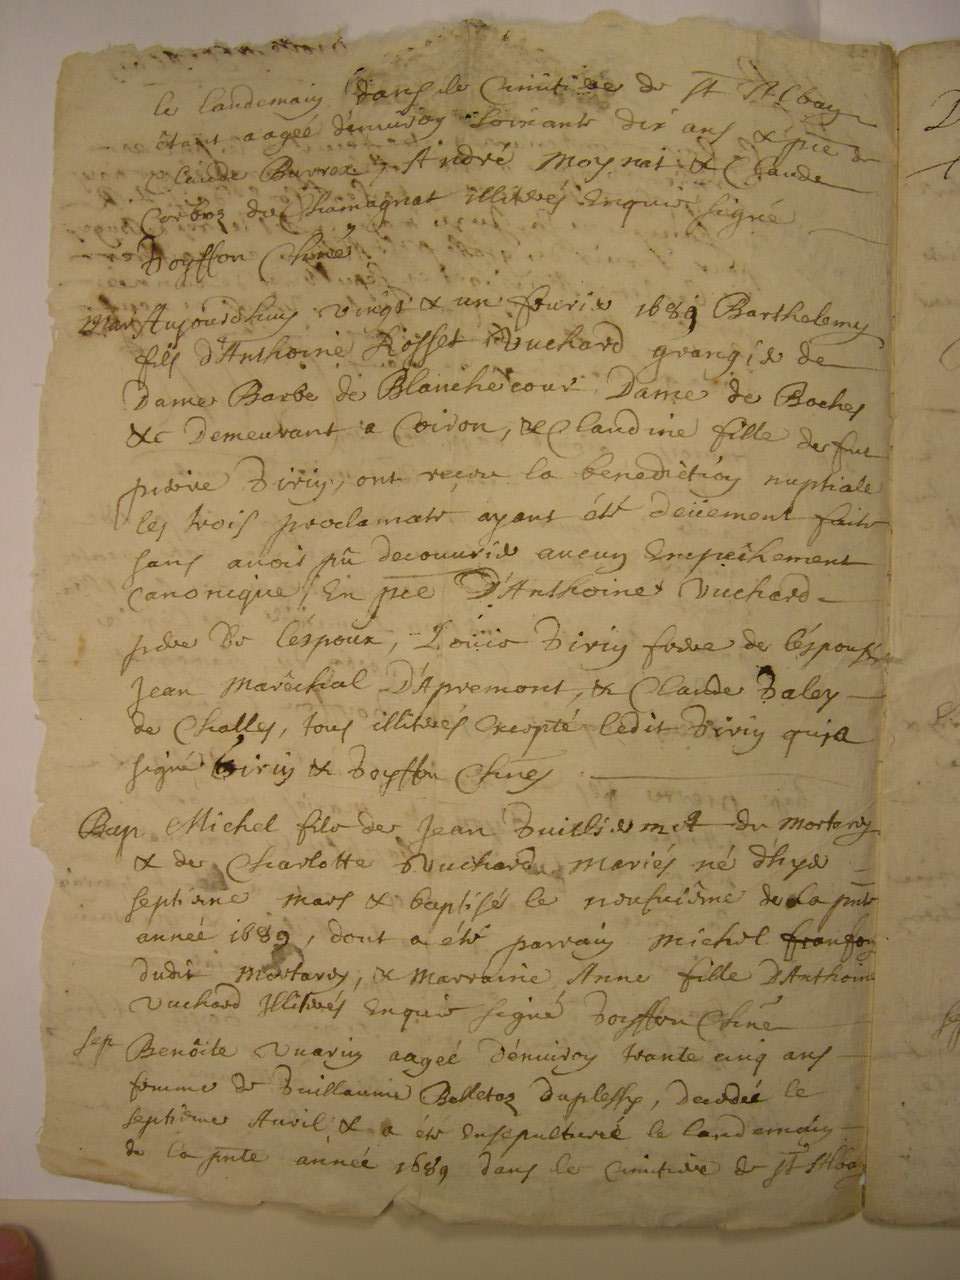 le landemain dans le Cimitiere de St Alban
êtant aageé d'enuiron soixante dix ans & pñce de
Claude Burrex, André Moynat & Claude
du Chamagnat illiterés Enquis signé
Boysson Curé
Mar Aujourdhuy vingt & un feurier 1689 Barthelemy
fils d'Anthoine Rosset Vuchard grangier de
Dame Barbe de Blanchecour Dame de Boches
&c Demeurant a Coiron, & Claudine fille de fut
pierre Tirin, ont reçeu la benediction nuptiale
les trois proclamats ayant été deüement faits
sans auoir pû decouurir aucun Empêchement
Canonique En pñce D'Anthoine Vuchard
pere de l'êspoux, Loüis Tirin frere de l'êspouse
Jean Marêchal D'Apremont, & Claude
de Challes, tous illiterés excepté ledit Tirin qui a
signé Tirin & Boysson Curé
Bap Michel fils de Jean du Mortarey
& de Charlotte Vuchard mariés né d'hyer
septieme mars & baptisé le neufuiême de la pñte
année 1689, dont a été parrain Michel
dudit Mortarey, & Marraine Anne fille D'Anthoine
Vuchard Illiterés Enquis signé Boysson Curé
Sep Benôite Vuarin aageé d'énuiron trante cinq ans
femme de Guillaume Belletaz Duplessy, decedeé le
septiême Auril & a été Ensepulturée le landemain
de la pñte année 1689 dans le cimitiere de St Alban